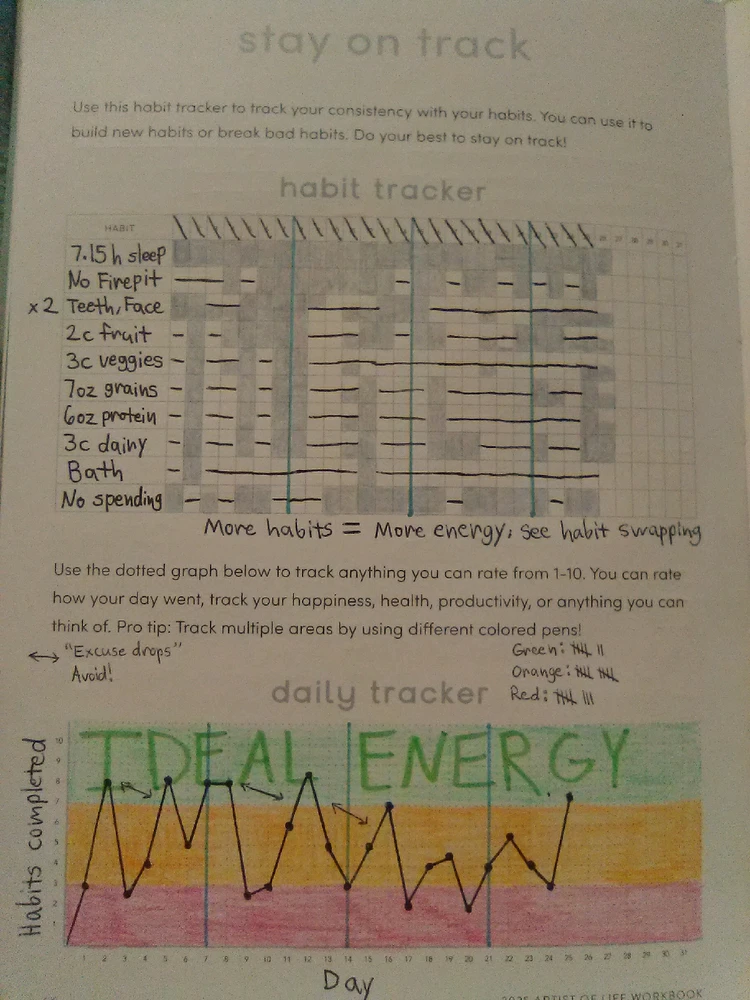 stay on track
Use this habit tracker to track your consistency with your habits. You can use it to
build new habits or break bad habits. Do your best to stay on track!
habit tracker
HABIT 26 27 28 29 30 31
7.15 h sleep
No Firepit
x2 Teeth, Face
2c fruit
3c veggies
7oz grains
6oz protein
3c dainy
Bath
No spending
More habits = More energy; see habit swapping
Use the dotted graph below to track anything you can rate from 1-10. You can rate
how your day went, track your happiness, health, productivity, or anything you can
think of. Pro tip: Track multiple areas by using different colored pens!
↔ "Excuse drops"
Avoid!
Green: 𝍸 ||
Orange: 𝍸 𝍸
Red: 𝍸 |||
daily tracker
IDEAL ENERGY
Habits completed
10
9
8
7
6
5
4
3
2
1
1 2 3 4 5 6 7 8 9 10 11 12 13 14 15 16 17 18 19 20 21 22 23 24 25 26 27 28 29 30 31
Day
2025 ARTIST OF LIFE WORKBOOK